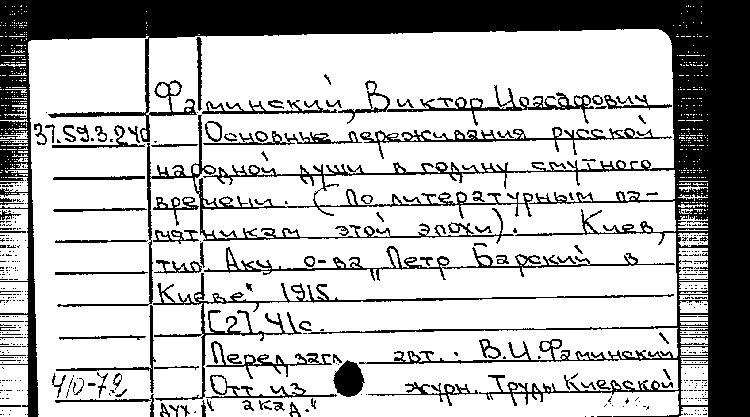 Фаминский, Виктор Иоасафович
37.59.3.240. Основные переживания русской
народной души в годину смутного
времени. (По литературным па-
мятникам этой эпохи). Киев,
тип. Акц. о-ва „Петр Барский в
Киеве", 1915.
[2], 41с.
Перед загл. авт.: В.И.Фаминский
4/0-72 Отт. из журн. „Труды Киевской
дух. акад."